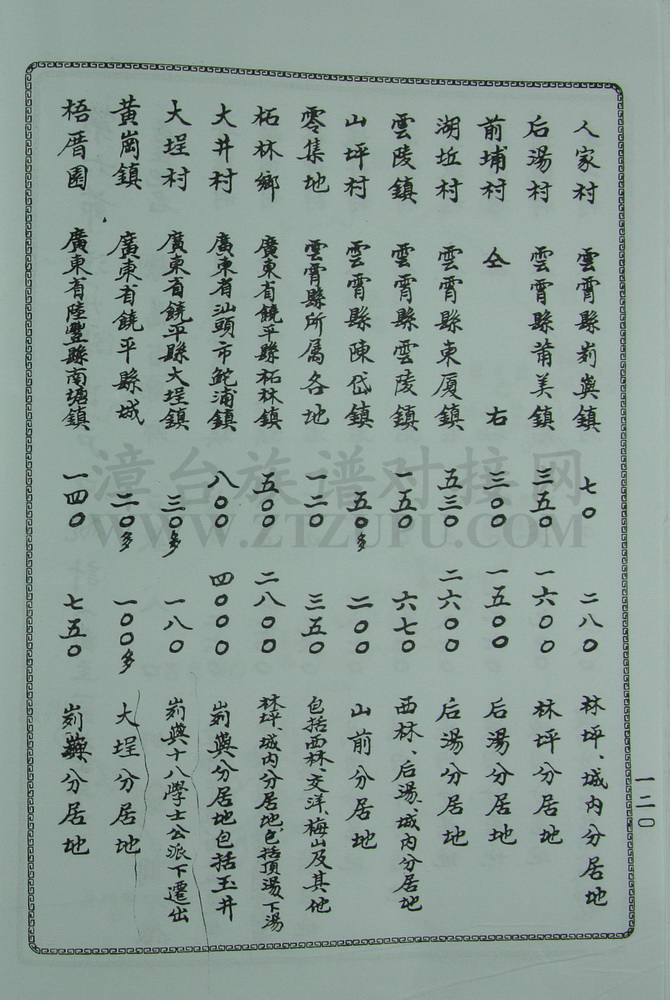 人家村 雲霄縣峛嶼鎮 七〇 二八〇 林坪、城内分居地
后湯村 雲霄縣莆美鎮 三五〇 一六〇〇 林坪分居地
前埔村 仝右 三〇〇 一五〇〇 后湯分居地
湖坵村 雲霄縣東厦鎮 五三〇 二六〇〇 后湯分居地
雲陵鎮 雲霄縣雲陵鎮 一五〇 六七〇 西林、后湯、城内分居地
山坪村 雲霄縣陳岱鎮 五〇多 二〇〇 山前分居地
零集地 雲霄縣所属各地 一二〇 三五〇 包括西林、交洋、梅山及其他
柘林鄉 廣東省饒平縣柘林鎮 五〇〇 二八〇〇 林坪、城内分居地、包括頂湯、下湯
大井村 廣東省汕頭市鮀浦鎮 八〇〇 四〇〇〇 峛嶼分居地包括玉井
大埕村 廣東省饒平縣大埕鎮 三〇多 一八〇 峛嶼十八學士公派下遷出
黃崗鎮 廣東省饒平縣城 二〇多 一〇〇多 大埕分居地
梧厝圍 廣東省陸豐縣南塘鎮 一四〇 七五〇 峛嶼分居地
一二〇
漳台族谱对接网
WWW.ZTZUPU.COM